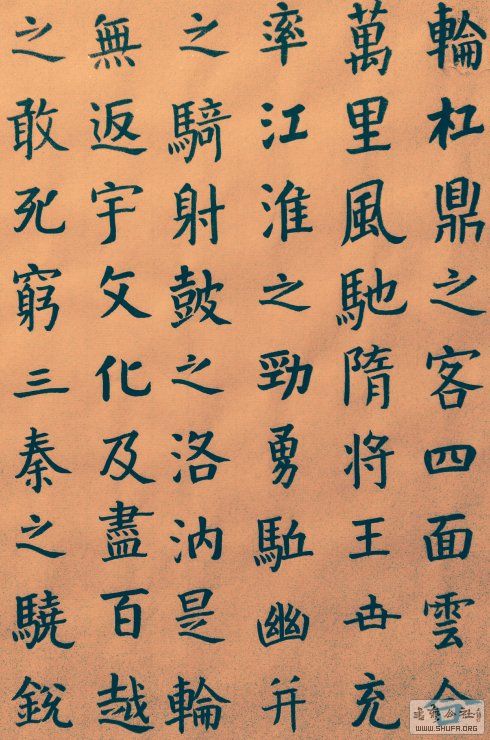 輪杠鼎之客四面雲合
萬里風馳隋将王世充
率江淮之勁勇駈幽并
之騎射鼓之洛汭是輪
無返宇文化及盡百越
之敢死窮三秦之驍銳
WWW.SHUFA.ORG